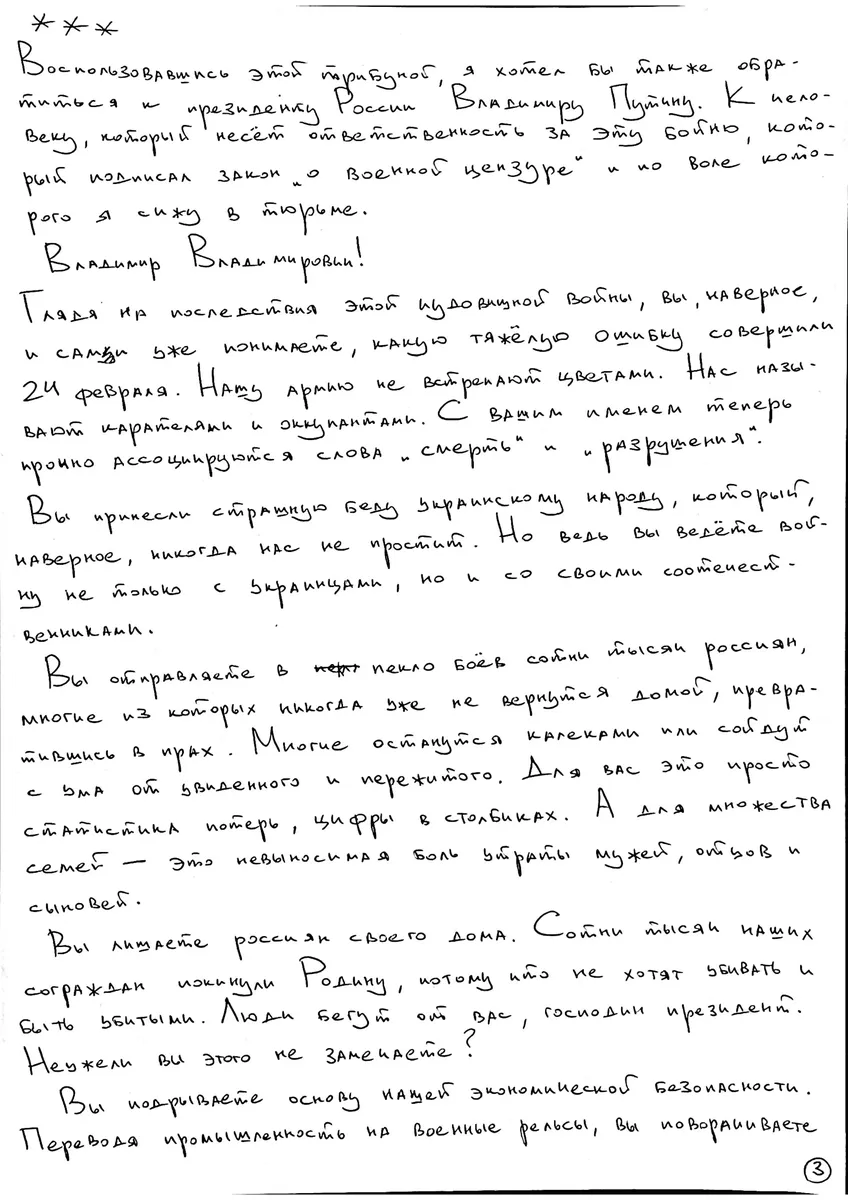 ***
Воспользовавшись этой трибуной, я хотел бы также обра-
титься к президенту России Владимиру Путину. К чело-
веку, который несёт ответственность за эту бойню, кото-
рый подписал закон „о военной цензуре" и по воле кото-
рого я сижу в тюрьме.
Владимир Владимирович!
Глядя на последствия этой чудовищной войны, вы, наверное,
и сами уже понимаете, какую тяжёлую ошибку совершили
24 февраля. Нашу армию не встречают цветами. Нас назы-
вают карателями и оккупантами. С вашим именем теперь
прочно ассоциируются слова „смерть" и „разрушения".
Вы принесли страшную беду украинскому народу, который,
наверное, никогда нас не простит. Но ведь вы ведёте вой-
ну не только с украинцами, но и со своими соотечест-
венниками.
Вы отправляете в пекло боёв сотни тысяч россиян,
многие из которых никогда уже не вернутся домой, превра-
тившись в прах. Многие останутся калеками или сойдут
с ума от увиденного и пережитого. Для вас это просто
статистика потерь, цифры в столбиках. А для множества
семей — это невыносимая боль утраты мужей, отцов и
сыновей.
Вы лишаете россиян своего дома. Сотни тысяч наших
сограждан покинули Родину, потому что не хотят убивать и
быть убитыми. Люди бегут от вас, господин президент.
Неужели вы этого не замечаете?
Вы подрываете основу нашей экономической безопасности.
Переводя промышленность на военные рельсы, вы поворачиваете
3